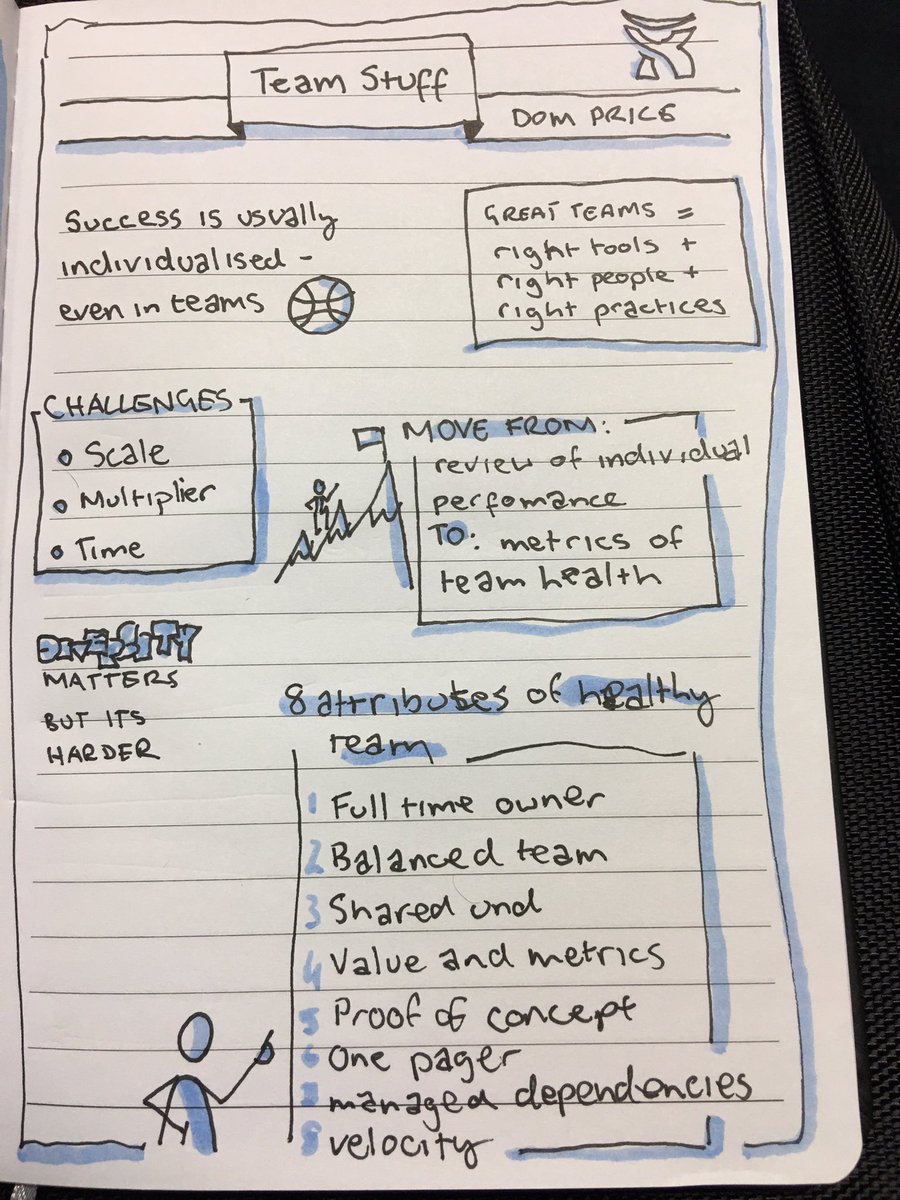 Team Stuff
DOM PRICE
Success is usually
individualised -
even in teams
GREAT TEAMS =
right tools +
right people +
right practices
CHALLENGES
• Scale
• Multiplier
• Time
MOVE FROM:
review of individual
perfomance
TO: metrics of
team health
DIVERSITY
MATTERS
BUT ITS
HARDER
8 attributes of healthy
team
1 Full time owner
2 Balanced team
3 Shared und
4 Value and metrics
5 Proof of concept
6 One pager
7 managed dependencies
8 velocity